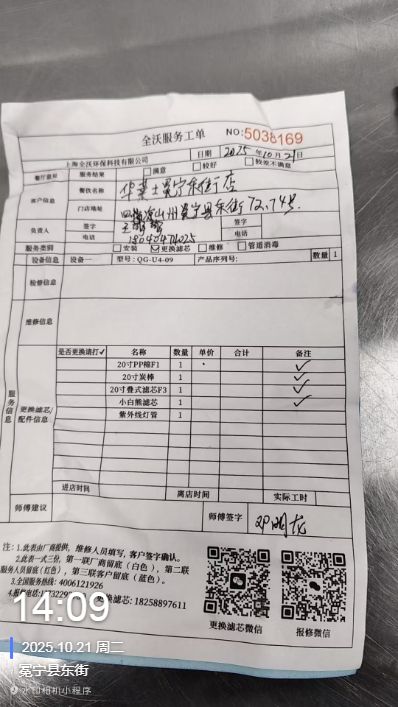 全沃服务工单 NO:5038169
上海全沃环保科技有限公司 日期 2025年10月21日
餐厅意见 服务结果 满意 较好 较差不满意
客户信息 餐饮名称 华莱士冕宁东街店
门店地址 州冕宁县东街72.74号
负责人 签字 签字
电话 电话
服务类别 安装 更换滤芯 维修 管道消毒
设备信息 设备一 型号:QG-U4-09 产品序列号: 数量 1
检修信息
维修信息
服务信息
更换滤芯/配件信息
是否更换请打✓ 名称 数量 单价 合计 备注
20寸PP棉F1 1 ✓
20寸炭棒 1 ✓
20寸叠式滤芯F3 1 ✓
小白熊滤芯 1 ✓
紫外线灯管 1
进店时间 离店时间 实际工时
师傅建议 师傅签字 邓明龙
注:1.此表由厂商提供,维修人员填写,客户签字确认。
2.此表一式三份,第一联厂商留底(白色),第二联
服务人员留底(红色),第三联客户留底(蓝色)。
3.全国服务热线:4006121926
更换滤芯:18258897611
更换滤芯微信 报修微信
14:09
2025.10.21 周二
冕宁县东街
水印相机小程序